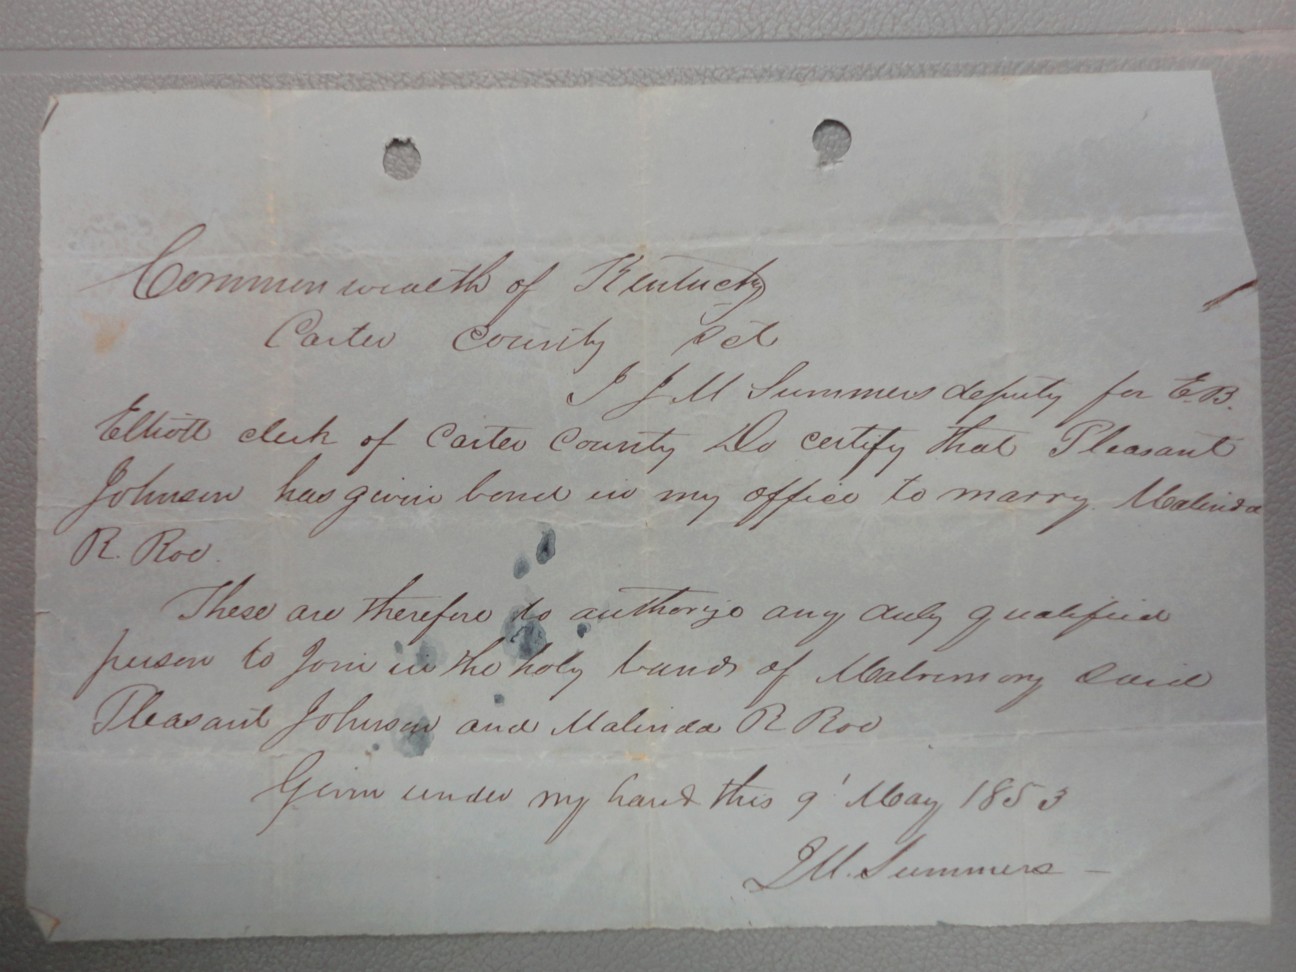 Commonwealth of Kentucky
Carter County Sct
I J M Summers deputy for E.B.
Elliott clerk of Carter County Do certify that Pleasant
Johnson has given bond in my office to marry Malinda
R. Roe.
These are therefore to authorize any duly qualified
person to Join in the holy bands of Matrimony Said
Pleasant Johnson and Malinda R Roe
Given under my hand this 9' May 1853
J M. Summers —